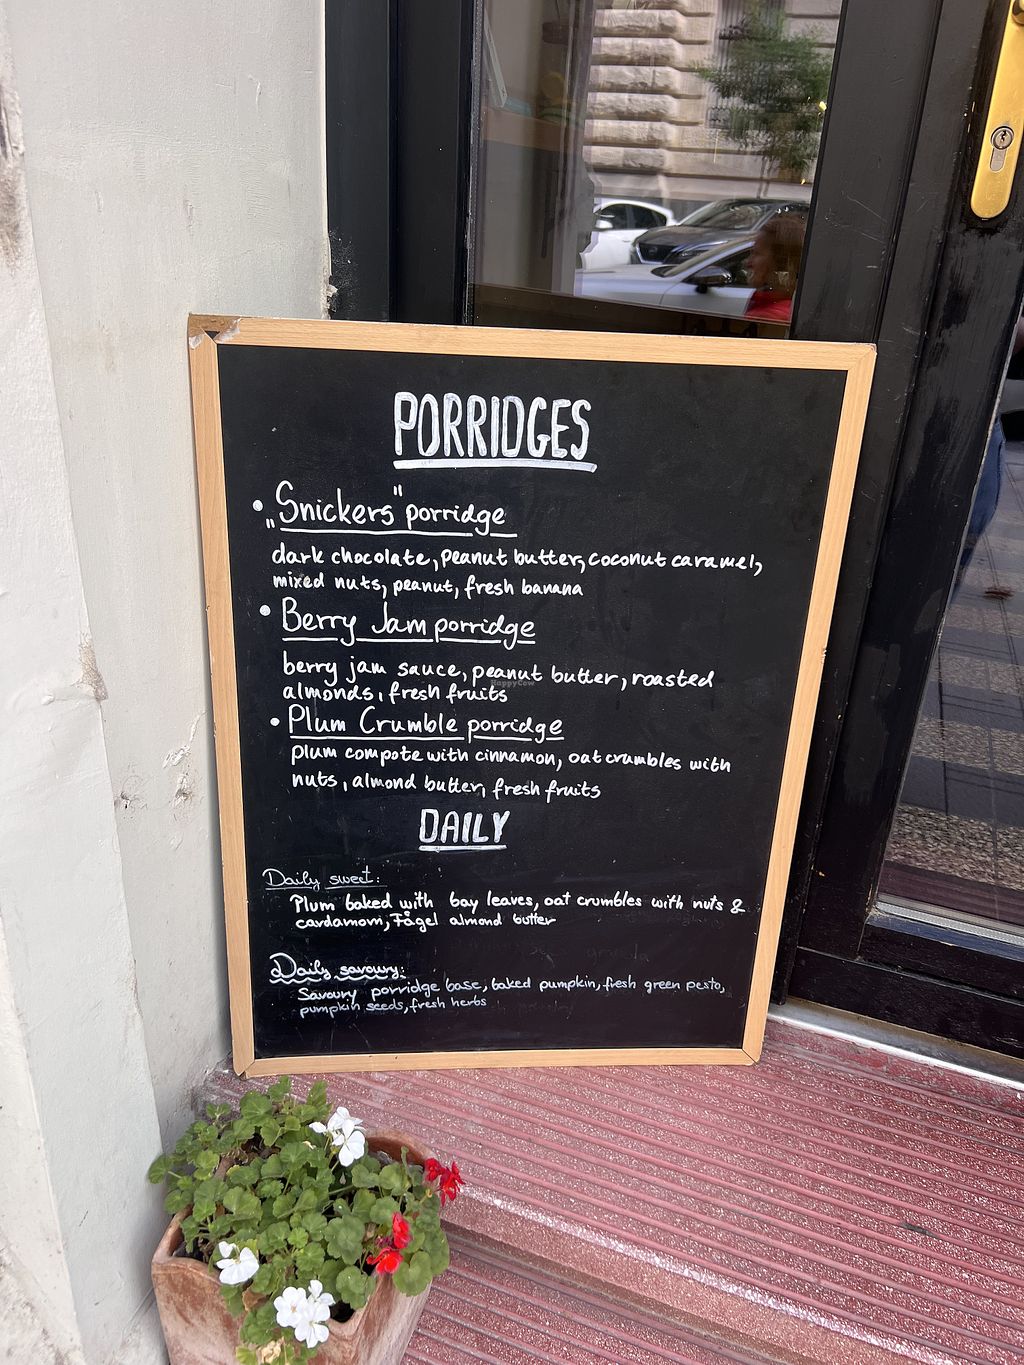 PORRIDGES
• „Snickers" porridge
dark chocolate, peanut butter, coconut caramel,
mixed nuts, peanut, fresh banana
• Berry Jam porridge
berry jam sauce, peanut butter, roasted
almonds, fresh fruits
• Plum Crumble porridge
plum compote with cinnamon, oat crumbles with
nuts, almond butter, fresh fruits
DAILY
Daily sweet:
Plum baked with bay leaves, oat crumbles with nuts &
cardamom, Fågel almond butter
Daily savoury:
Savoury porridge base, baked pumpkin, fresh green pesto,
pumpkin seeds, fresh herbs
HappyCow